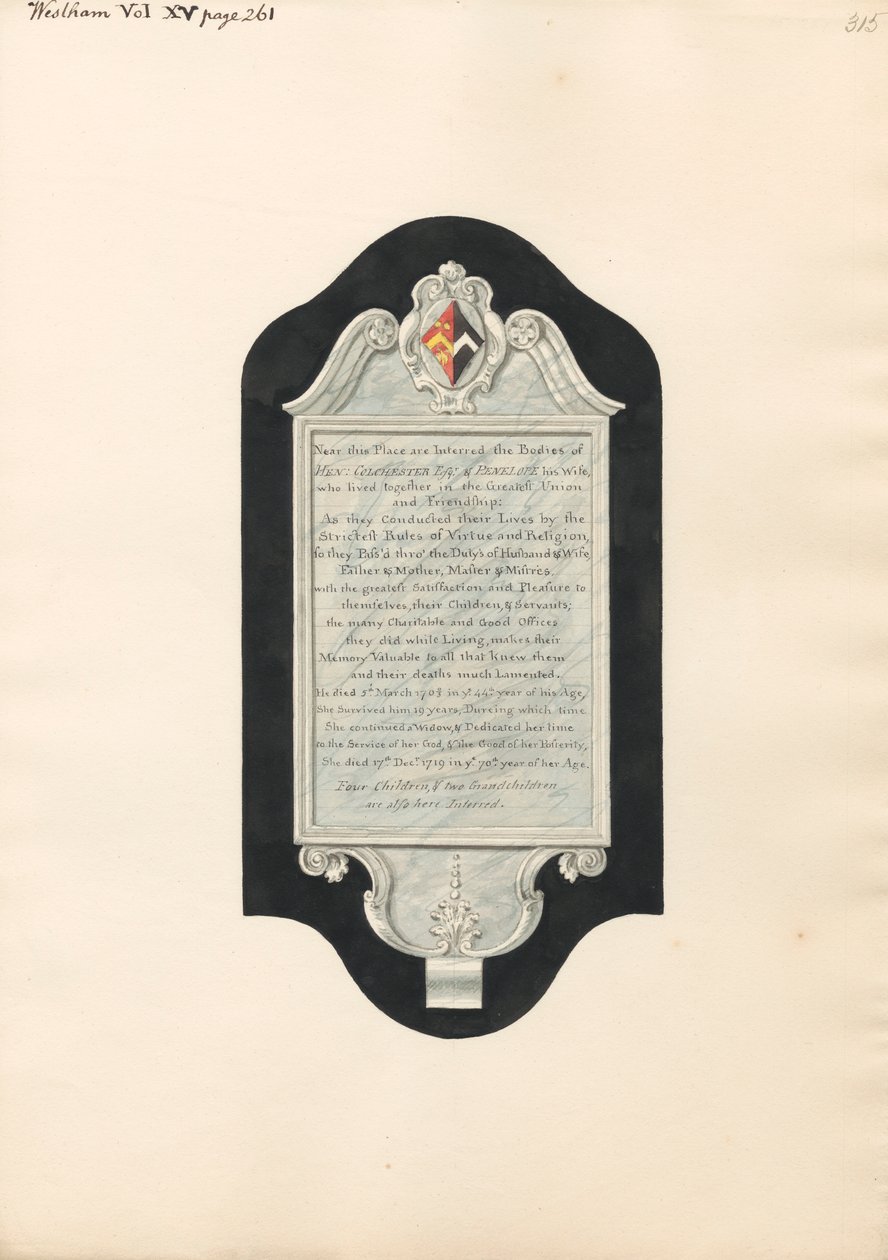 Westham Vol XV page 261
315
Near this Place are Interred the Bodies of
HEN: COLCHESTER Esqr. & PENELOPE his Wife,
who lived together in the Greatest Union
and Friendship:
As they Conducted their Lives by the
Strictest Rules of Virtue and Religion,
so they Pass'd thro' the Duty's of Husband & Wife,
Father & Mother, Master & Mistres.
with the greatest Satisfaction and Pleasure to
themselves, their Children, & Servants;
the many Charitable and Good Offices
they did while Living, makes their
Memory Valuable to all that knew them
and their deaths much Lamented.
He died 5th March 170 in ye. 44th year of his Age,
She Survived him 19 years, Dureing which time
She continued a Widow, & Dedicated her time
to the Service of her God, & the Good of her Posterity,
She died 17th Decr. 1719 in ye. 70th year of her Age.
Four Children, & two Grandchildren
are also here Interred.